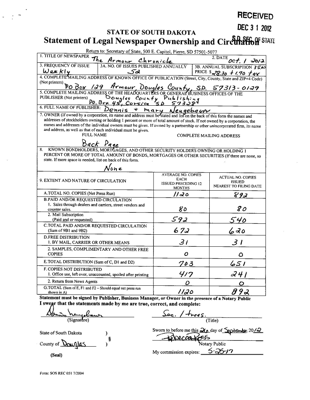 RECEIVED
DEC 31 2012
STATE OF SOUTH DAKOTA
Statement of Legal Newspaper Ownership and Circulation
S.D. SEC. OF STATE
Return to: Secretary of State, 500 E. Capitol, Pierre, SD 57501-5077
1. TITLE OF NEWSPAPER The Armour Chronicle
2. DATE Oct. 1 2012
3. FREQUENCY OF ISSUE Weekly
3A. NO. OF ISSUES PUBLISHED ANNUALLY 52
3B. ANNUAL SUBSCRIPTION PRICE
4. COMPLETE MAILING ADDRESS OF KNOWN OFFICE OF PUBLICATION (Street, City, County, State and ZIP+4 Code)
(Not printers) PO Box 129 Armour Douglas County, SD 57313-0129
5. COMPLETE MAILING ADDRESS OF THE HEADQUARTERS OR GENERAL BUSINESS OFFICES OF THE
PUBLISHER (Not printers) Douglas County Publishing
PO Box 45, Corsica SD 57328
6. FULL NAME OF PUBLISHER:
7. OWNER (If owned by a corporation, its name and address must be stated and
stockholders owning or holding 1 percent or more of total amount of stock. If not owned by a corporation, the
names and addresses of the individual owners must be given. If owned by a partnership or other unincorporated firm, its name
and address, as well as that of each individual must be given.
FULL NAME
COMPLETE MAILING ADDRESS
Back Page
8. KNOWN BONDHOLDERS, MORTGAGEES, AND OTHER SECURITY HOLDERS OWNING OR HOLDING 1
PERCENT OR MORE OF TOTAL AMOUNT OF BONDS, MORTGAGES OR OTHER SECURITIES (If there are none, so
state. If more space is needed, list on back of this form.
None
9. EXTENT AND NATURE OF CIRCULATION
AVERAGE NO. COPIES EACH ISSUED PRECEDING 12 MONTHS
ACTUAL NO. COPIES ISSUED NEAREST TO FILING DATE
A. TOTAL NO. COPIES (Net Press Run) 1120 892
B. PAID AND/OR REQUESTED CIRCULATION
1. Sales through dealers and carriers, street vendors and
counter sales 80 80
2. Mail Subscription
(Paid and or requested) 592 540
C. TOTAL PAID AND/OR REQUESTED CIRCULATION
(Sum of 9B1 and 9B2) 672 620
D. FREE DISTRIBUTION
1. BY MAIL, CARRIER OR OTHER MEANS 31 31
2. SAMPLES, COMPLIMENTARY AND OTHER FREE
COPIES 0 0
E. TOTAL DISTRIBUTION (Sum of C, D1 and D2) 703 651
F. COPIES NOT DISTRIBUTED
1. Office use, left over, unaccounted, spoiled after printing 417 241
2. Return from News Agents 0 0
G. TOTAL (Sum of E, F1 and F2 - Should equal net press run
shown in A) 1120 892
Statement must be signed by Publisher, Business Manager, or Owner in the presence of a Notary Public
I swear that the statements made by me are true, correct, and complete:
(Signature)
Sec. / treas.
(Title)
State of South Dakota )
§
County of Douglas )
(Seal)
Sworn to before me this day of September 2012
Notary Public
My commission expires:
Form: SOS REC 051 7/2004